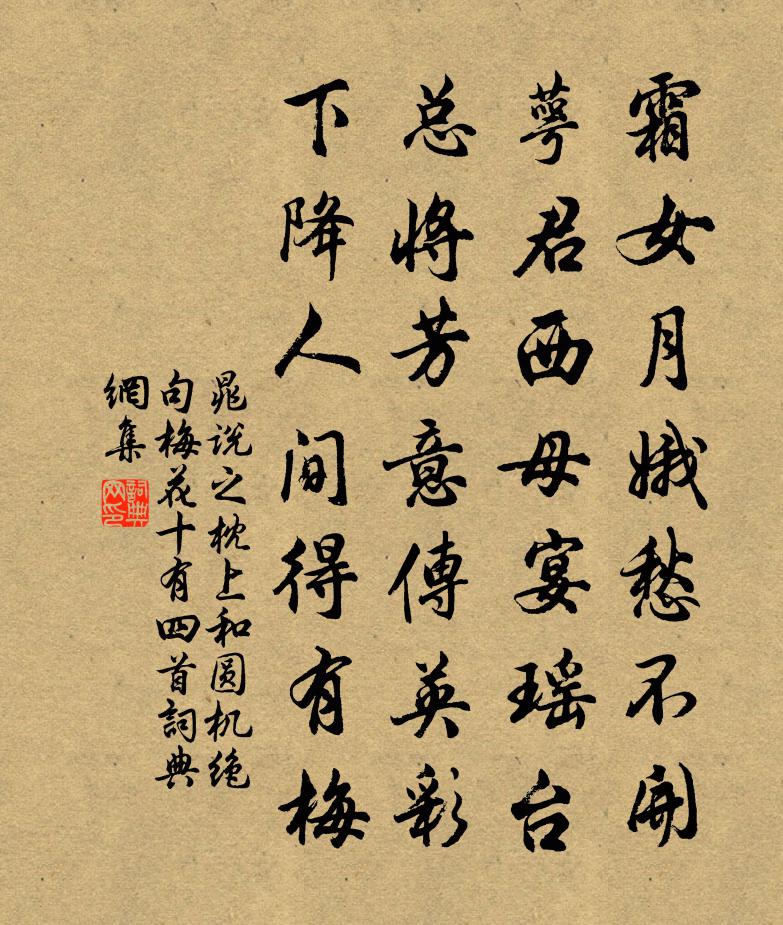 霜女月娥愁不开
萼君西母宴瑶台
总将芳意傳英彩
下降人间得有梅
晁说之枕上和圆机绝
句梅花十有四首詞典
網集
詞典
网印